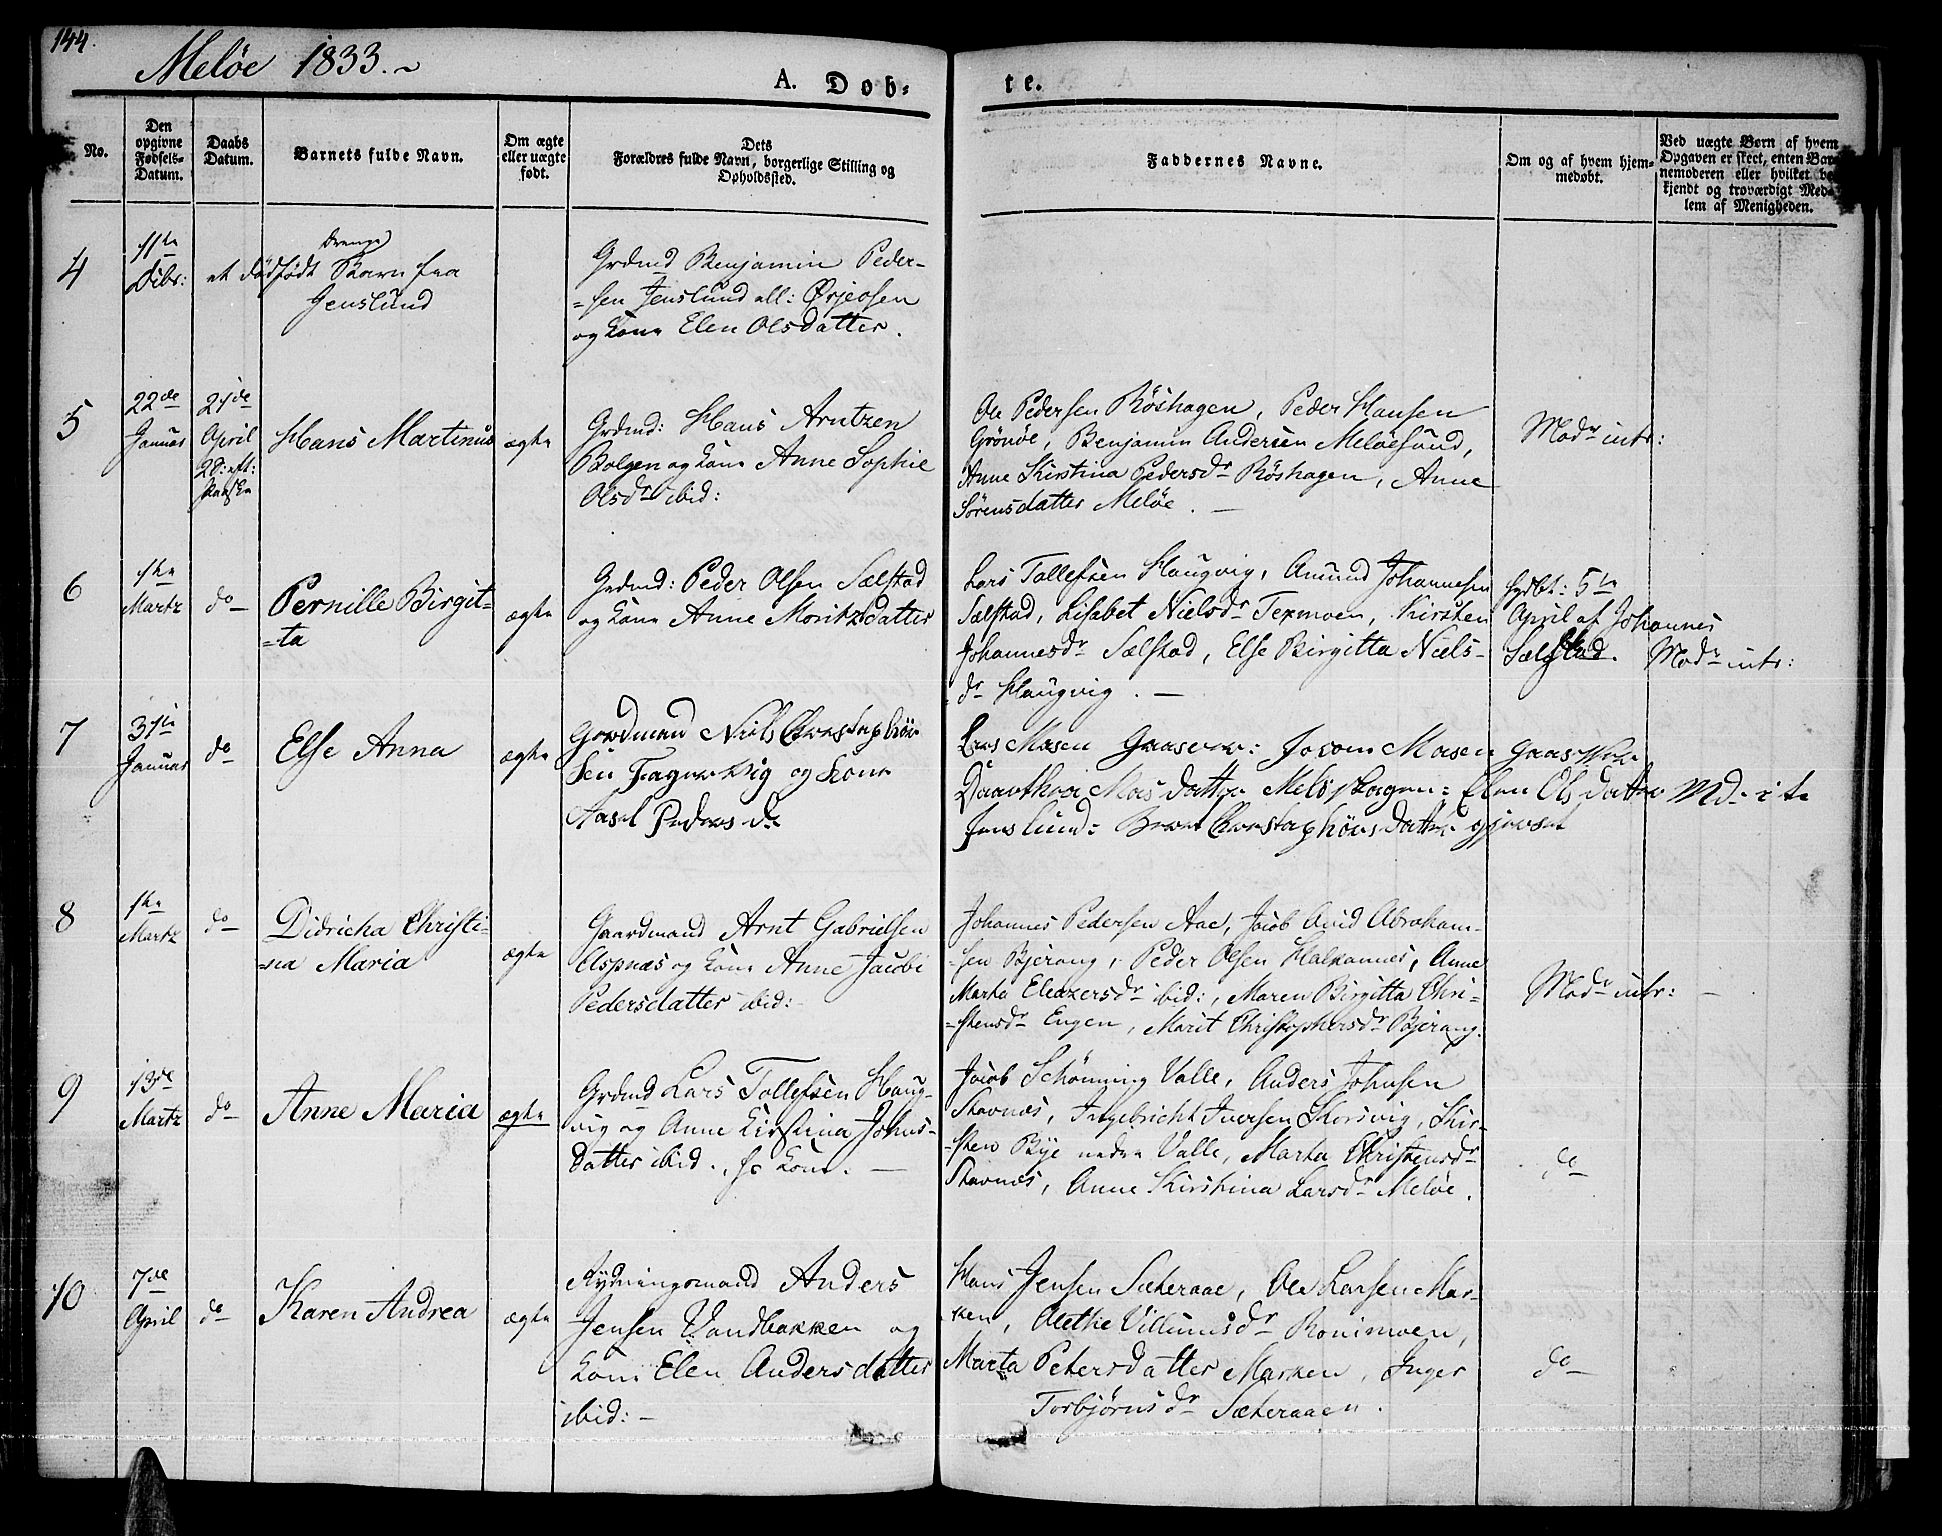 144.
Meløe 1833.
A. Døb-
te.
No.
Den
opgivne
Fødsels-
Datum.
Daabs
Datum.
Barnets fulde Navn.
Om ægte
eller uægte
født.
Dets
Forældres fulde Navn, borgerlige Stilling og
Opholdssted.
Faddernes Navne.
Om og af hvem hjem-
medøbt.
Ved uægte Børn af hvem
Opgaven er skeet, enten Bar-
nemoderen eller hvilket be-
kjendt og troværdigt Med-
lem af Menigheden.
4
11te
Dcbr:
Drenge
et dødfødt Barn fra
Jenslund
Grdmd Benjamin Peder-
=sen Jenslund all: Ørjeosen
og Kone Elen Olsdatter.
5
22de
Januar
21de
April
2 S: eft:
Paaske
Hans Martinus
ægte
Grdmd: Hans Arntzen
Bolgen og Kone Anne Sophie
Olsdr ibid:
Ole Pedersen Röshagen, Peder Hansen
Grönöe, Benjamin Andersen Meløesund,
Anne Kirstina Pedersdr Röshagen, Anne
Sörensdatter Meløe. —
Modr intr:
6
1te
Martz
do
Pernille Birgit-
=ta
ægte
Grdmd: Peder Olsen Sælstad
og Kone Anne Moritzdatter
Lars Tollefsen Haugvig, Amund Johannesen
Sælstad, Lisabet Nielsdr Texmoen, Kirsten
Johannesdr Sælstad, Else Birgitta Niels-
dr Haugvig. —
hjdbt: 5te
April af Johannes
Sælstad. Modr intr:
7
31te
Januar
do
Else Anna
ægte
Gordmand Niels Christophör
Sen Fagervig og Kone
Aasel Peders Dr
Lars Masen Gaasvær: Jocom Masen Gaasvær
Daarthea Mas datter Meløskagen: Elen Ols datter
Jenslund: Beret Christophörs datter gjerset
Md. i te
8
1te
Martz
do
Didricha Christi-
=na Maria
ægte
Gaardmand Arnt Gabrielsen
Aspnæs og Kone Anne Jacobi
Pedersdatter ibid:
Johannes Pedersen Aae, Jacob Avid Abraham-
=sen Bjerang, Peder Olsen Halkannes, Anne
Marta Eleazersdr ibid:, Maren Birgitta Chri-
=stensdr Engen, Marit Christophersdr Bjerang.
Modr intr: —
9
13de
Martz
do
Anne Maria
ægte
Grdmd Lars Tollefsen Haug-
vig og Anne Kirstina Johns-
datter ibid., hs Kone. —
Jacob Schönning Valle, Anders Johnsen
Stavnæs, Ingebricht Iversen Skorsvig, Kir-
=sten Bye nedre Valle, Marta Christensdr
Stavnæs, Anne Kirstina Larsdr Meløe.
do
10
7de
April
do
Karen Andrea
ægte
Rydningsmand Anders
Jensen Vandbakken og
Kone Elen Andersdatter
ibid: —
Hans Jensen Sæteraae, Ole Larsen Mar-
ken, Alethe Villumsdr Ronimoen,
Marta Petersdatter Marken, Inger
Torbjörnsdr Sæteraaen.
do